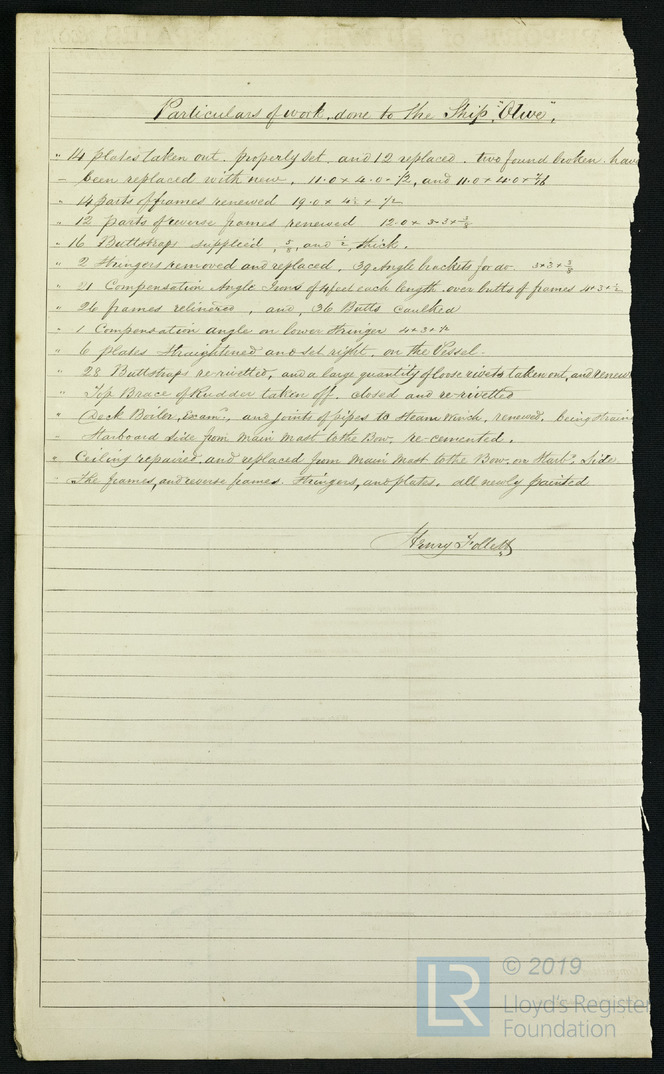 Particulars of work done to the Ship, "Olive",
" 14 plates taken out. properly set. and 12 replaced. two found broken have
- been replaced with new. 11.0 × 4.0 × 1/2, and 11.0 × 4.0 × 7/16
" 14 parts of frames renewed 19.0 × 4 1/2 × 1/2
" 12 parts of reverse frames renewed 12.0 × 3 - 3 × 3/8
" 16 Buttstraps supplied, 5/8, and 1/2, thick.
" 2 Stringers removed and replaced. 39 Angle brackets for do. 3 × 3 × 3/8
" 21 Compensation Angle Irons of 4 feet each length over butts of frames 4 × 3 × 1/2
" 26 frames relinered, and, 36 Butts caulked
" 1 Compensation angle on lower Stringer 4 × 3 × 1/2
" 6 plates Straightened and set right. on the Vessel.
" 28 Buttstraps re-rivetted, and a large quantity of loose rivets taken out, and renew
" Top Brace of Rudder taken off. closed and re-rivetted
" Deck Boiler, and joints of pipes to Steam Winch, renewed. being Strain
" Starboard Side from Main Mast to the Bow. re-cemented.
" Ceiling repaired. and replaced from Main Mast to the Bow. on Starbd. Side.
The frames, and reverse frames. Stringers, and plates. all newly painted
Henry Follett
© 2019
LR
Lloyd's Register
Foundation